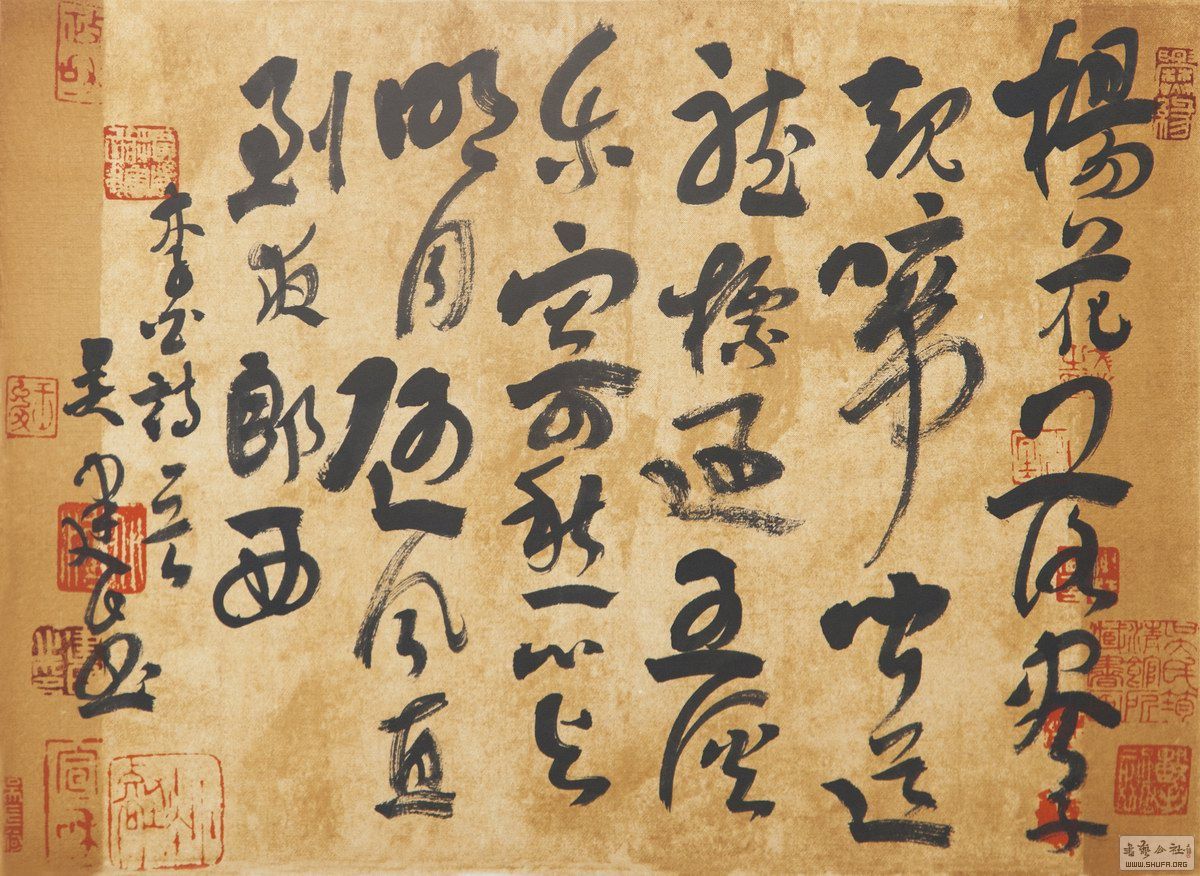 楊花落盡子
規啼聞道
龍標過五溪
我寄愁心与
明月随风直
到夜郎西
李白詩一首
吴民书
宣和
書藝公社
WWW.SHUFA.ORG